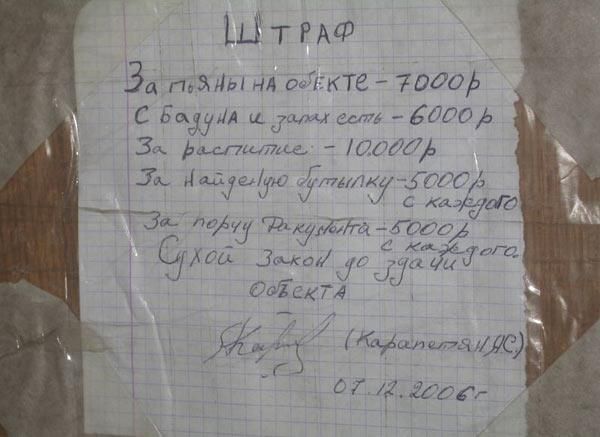 ШТРАФ
За пьяны на обекте – 7000р
С бадуна и запах есть – 6000р
За распитие – 10.000р
За найденую бутылку – 5000р
с каждого
За порчу – 5000р
с каждого.
Сухой закон до здачи
объекта
(Карапетян А.С.)
07.12.2006г